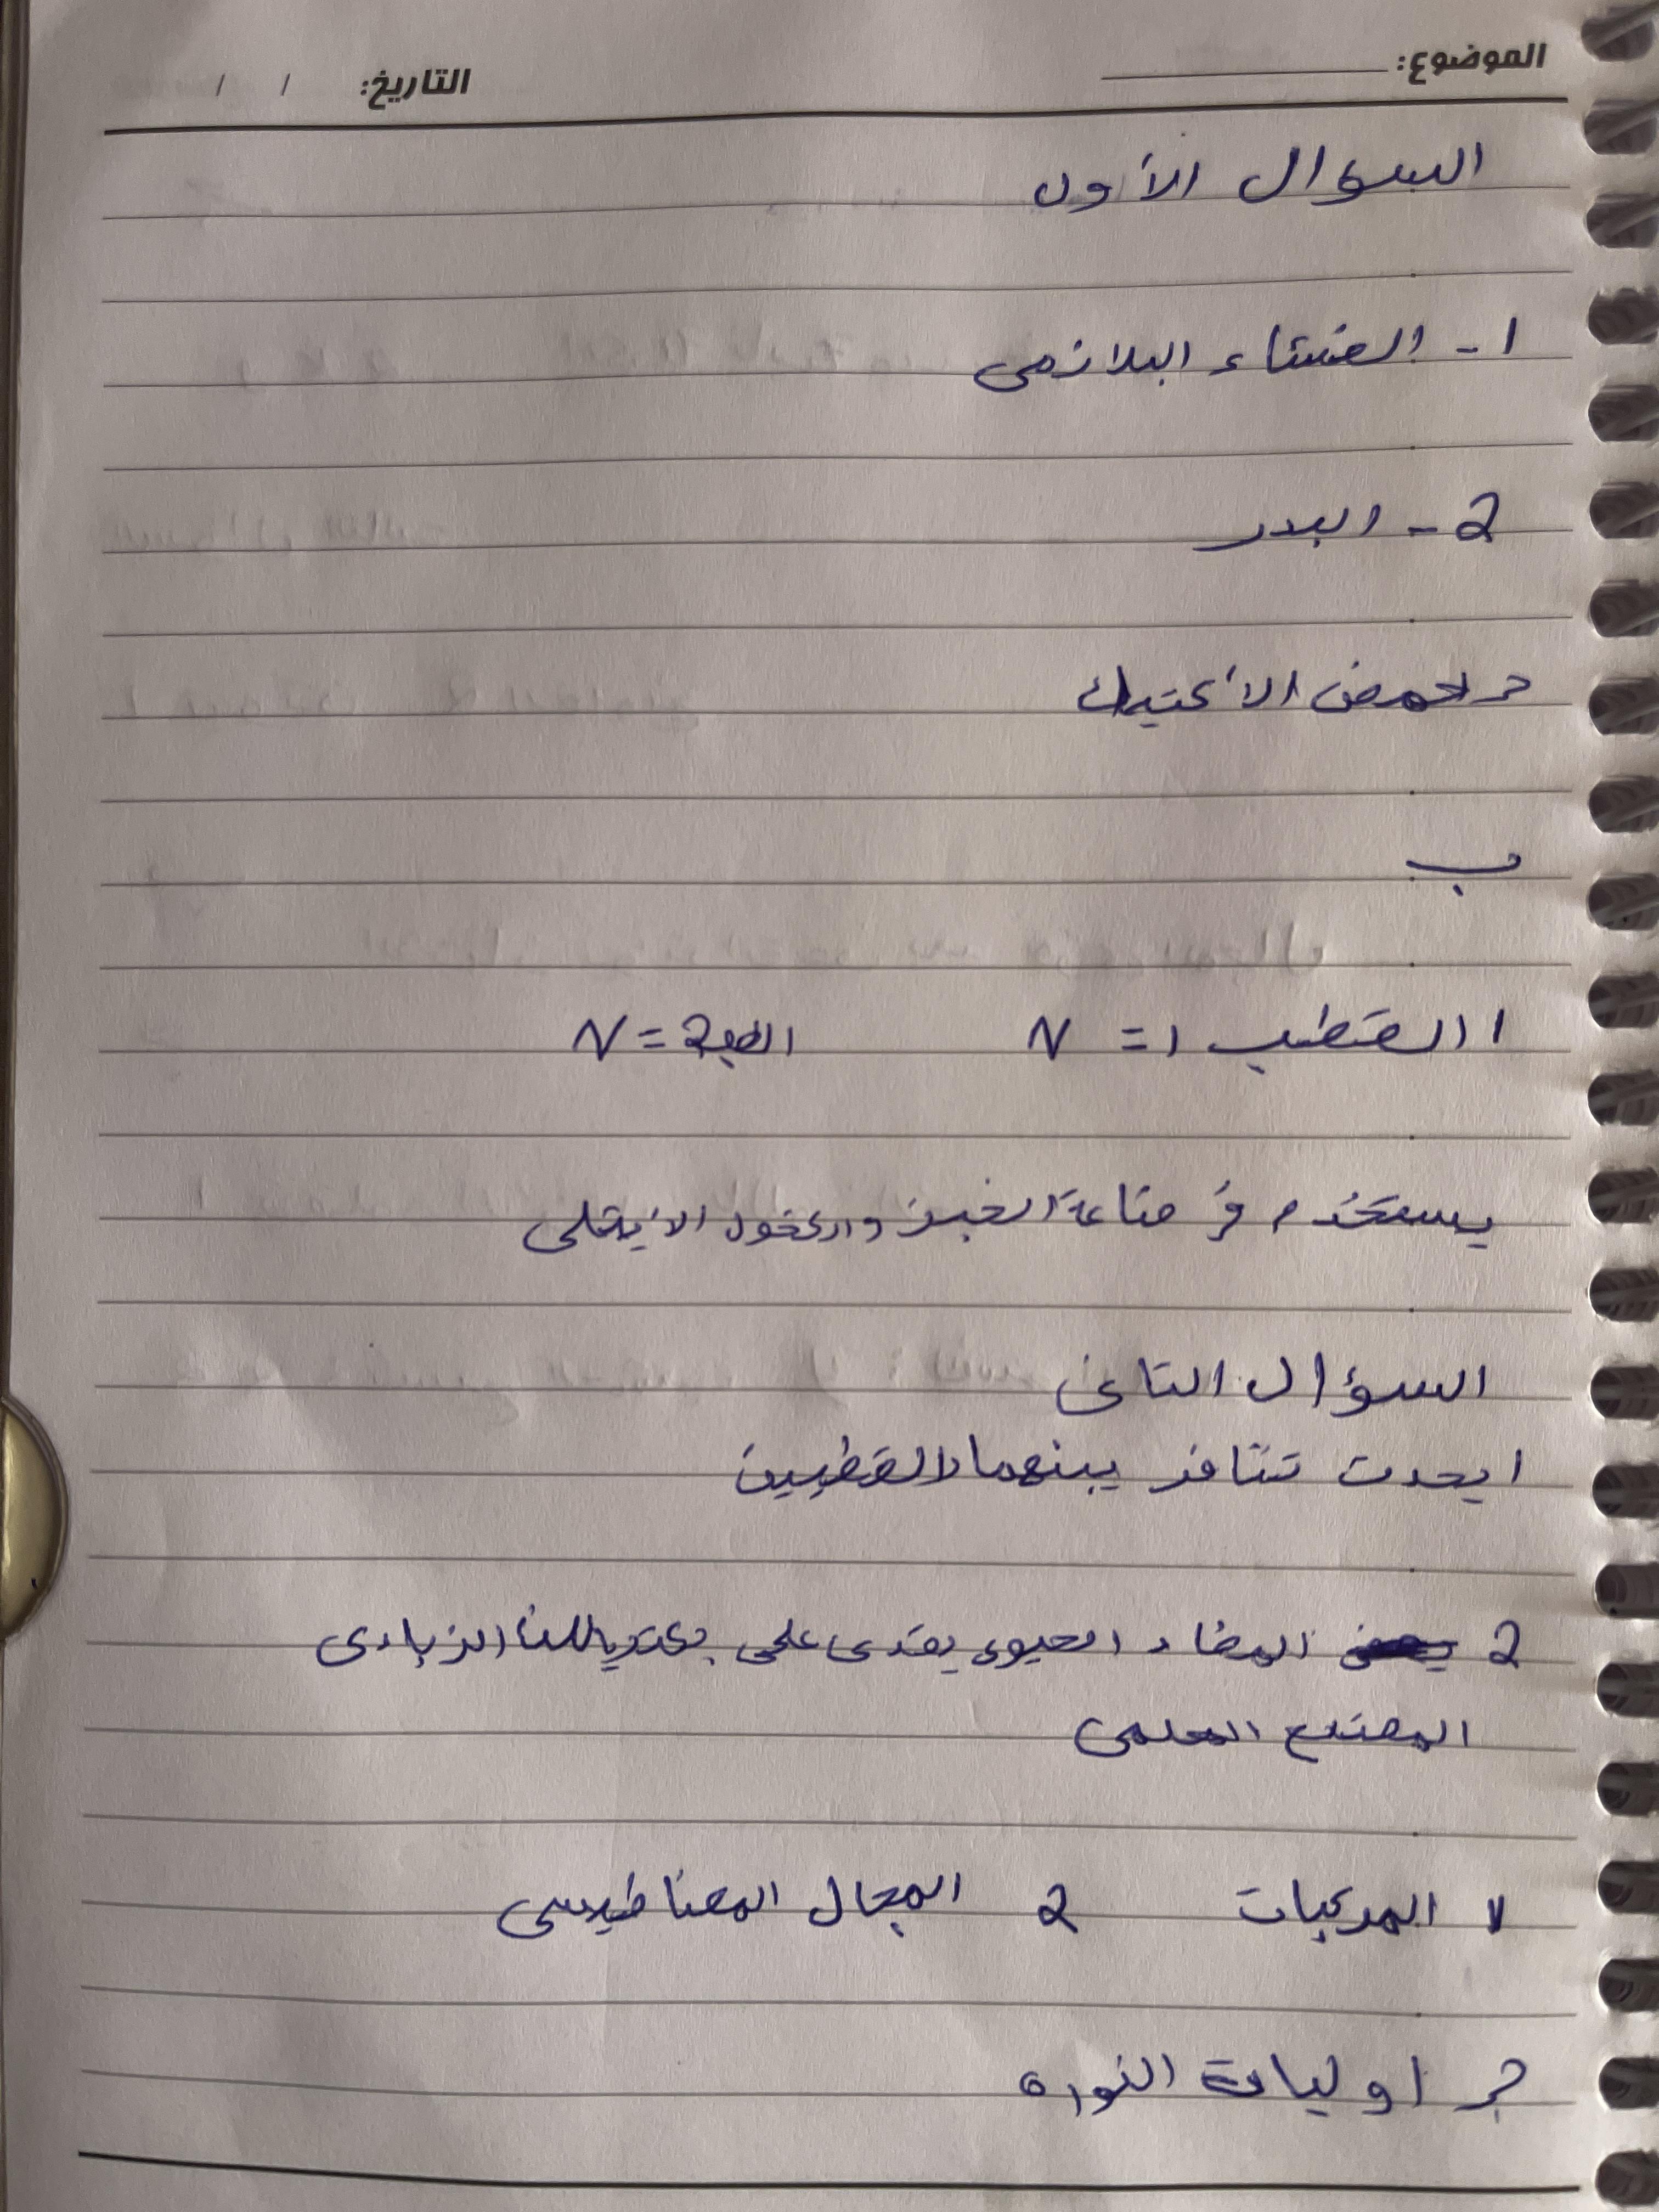 الموضوع: التاريخ: / /
السؤال الأول
1- الغشاء البلازمى
2- البدر
حمض الأكتيك
ب
1 القطب 1 = N القطب 2 = N
يستخدم فى صناعة الخبز والكحول الأيثيلى
السؤال الثانى
1 يحدث تنافر بينهما القطبين
2 المضاد الحيوى يقضى على بكتريا اللبن الزبادى
المصنع المحلى
1 المركبات 2 المجال المغناطيسى
ج اوليات النواه